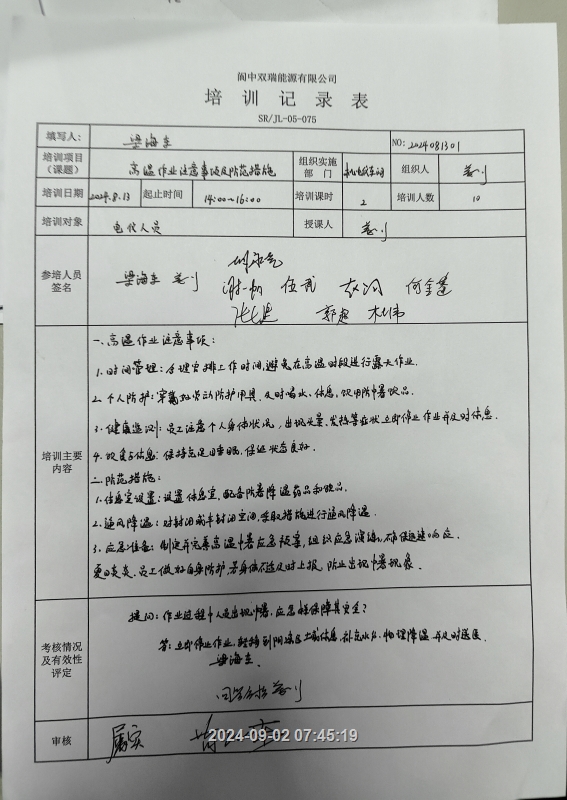 阆中双瑞能源有限公司
培训记录表
SR/JL-05-075
填写人： 梁海东 NO: 2024081301
培训项目（课题） 高温作业注意事项及防范措施 组织实施部门 组织人
培训日期 2024.8.13 起止时间 14:00~16:00 培训课时 2 培训人数 10
培训对象 电仪人员 授课人
参培人员签名
梁海东 伍武 何金蓬
郭超
培训主要内容
一.高温作业注意事项：
1.时间管理：合理安排工作时间，避免在高温时段进行露天作业。
2.个人防护：穿戴好劳动防护用具，及时喝水、休息，饮用防中暑饮品。
3.健康监测：员工注意个人身体状况，出现头晕、发热等症状立即停止作业并及时休息。
4.饮食与休息：保持充足睡眠，保证状态良好。
二.防范措施：
1.休息室设置：设置休息室，配备防暑降温药品和饮品。
2.通风降温：对封闭或半封闭空间，采取措施进行通风降温。
3.应急准备：制定并完善高温中暑应急预案，组织应急演练，确保迅速响应。
夏日炎炎，员工做好自身防护，若身体不适及时上报，防止出现中暑现象。
考核情况及有效性评定
提问：作业过程中人员出现中暑，应怎样保障其安全？
答：立即停止作业，转移到阴凉区域休息，补充水分，物理降温并及时送医。
梁海东.
回答合格
审核 属实
2024-09-02 07:45:19